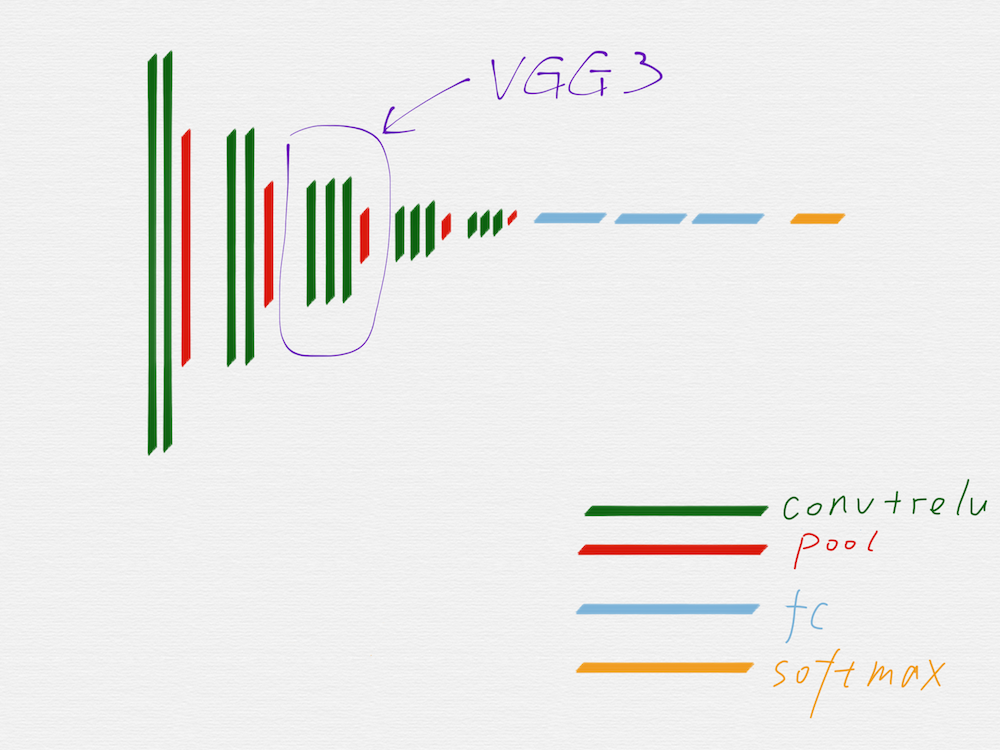 VGG3
conv+relu
pool
fc
softmax